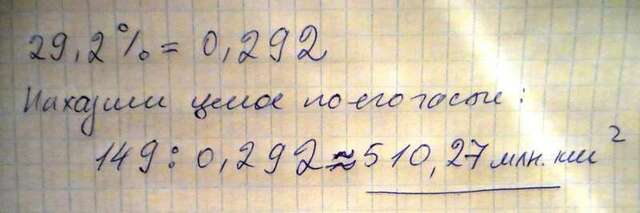 29,2% = 0,292
Находим целое по его части:
149 : 0,292 ≈ 510,27 млн. км²